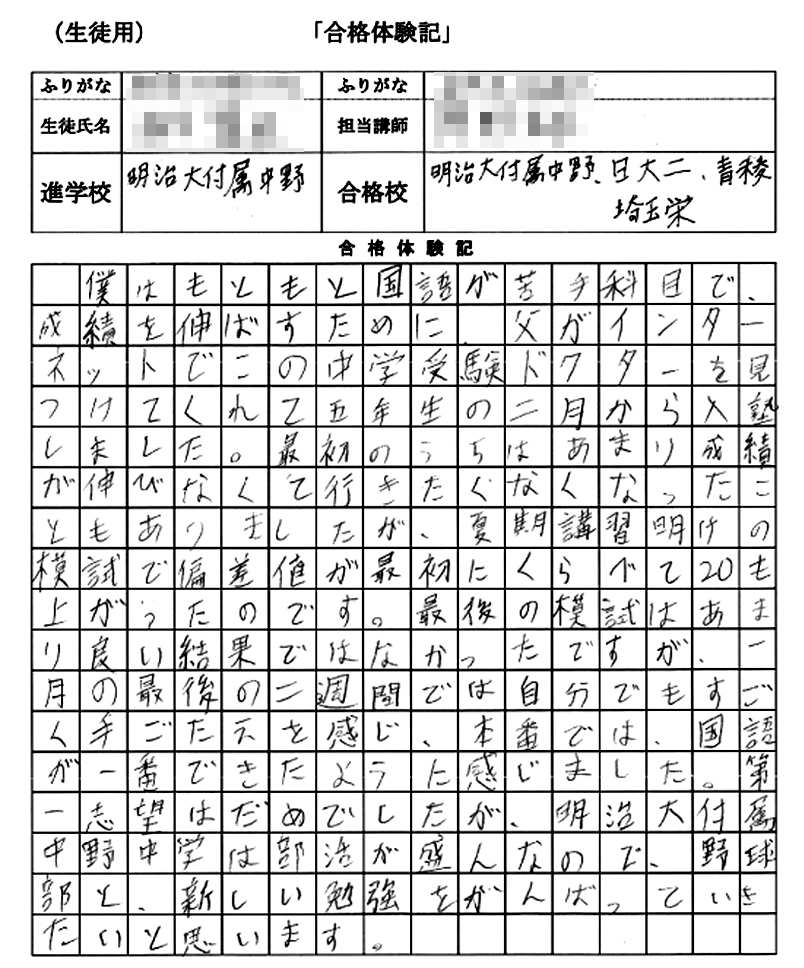 （生徒用）　「合格体験記」
ふりがな　ふりがな
生徒氏名　担当講師
進学校　明治大付属中野　合格校　明治大付属中野、日大二、青稜
埼玉栄
合格体験記
僕はもともと国語が苦手科目で、
成績を伸ばすために、父がインター
ネットでこの中学受験ドクターを見
つけてくれて五年生の二月から入塾
しました。最初のうちはあまり成績
が伸びなくて行きたくなくなったこ
ともありましたが、夏期講習明けの
模試で偏差値が最初にくらべて20も
上がったのです。最後の模試はあま
り良い結果ではなかったですが、一
月の最後の二週間では自分でもすご
く手ごたえを感じ、本番では、国語
が一番できたように感じました。第
一志望はだめでしたが、明治大付属
中野中学は部活が盛んなので、野球
部と、新しい勉強をがんばっていき
たいと思います。